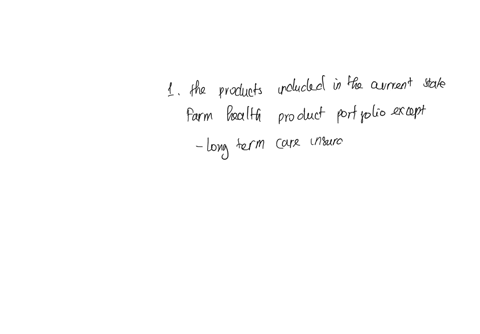 1. the products included in the current state
Farm health product portfolio except
- Long term care insurc